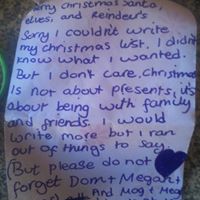 merry Christmas Santa,
elves, and Reindeer's
Sorry I couldn't write
my christmas List. I didn't
know what I wanted.
But I don't care, Christmas
is not about presents, it's
about being with family
and friends. I would
write more but i ran
out of things to say.
(But please do not
forget Dom + Megan +
And